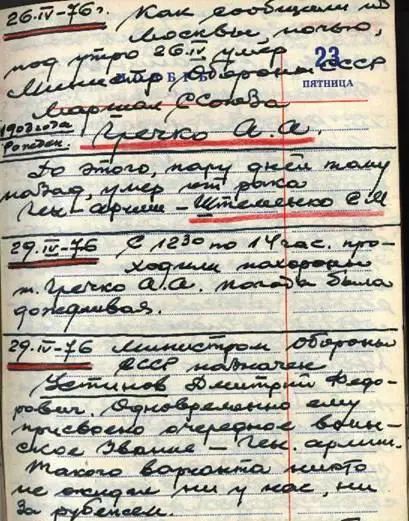 26.IV-76г. Как сообщили из
Москвы, ночью,
под утро 26.IV умер
23
Министр Обороны СССР
НОЯБРЬ
ПЯТНИЦА
Маршал ССоюза
1903 года
Рожден.
Гречко А.А.
До этого, пару дней тому
назад, умер от рака
Ген-армии - Штеменко С.М
29.IV-76 С 12³⁰ по 14 час. про-
ходили похороны
т. Гречко А.А. погода была
дождливая.
29.IV-76 Министром обороны
СССР назначен
Устинов Дмитрий Федо-
рович. Одновременно ему
присвоено очередное воин-
ское звание - Ген. армии.
Такого варианта никто
не ожидал ни у нас, ни
за рубежем.